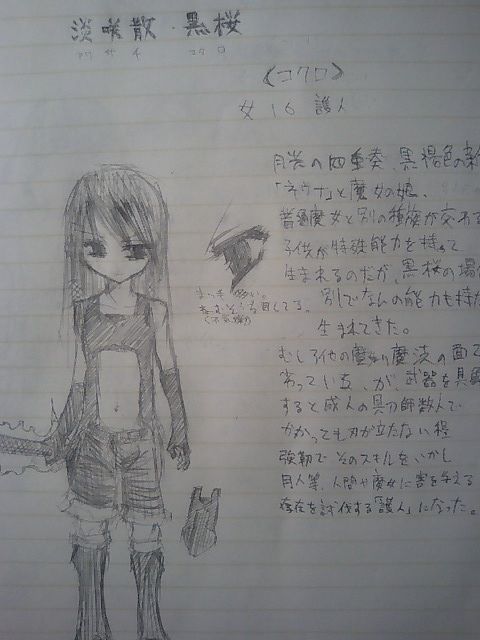 淡咲散 黒桜
アワサキ コクロ
《コクロ》
女 16 護人
月光の四重奏、黒褐色の
「ネウナ」と魔女の娘、
普通魔女と別の種族が交わる
子供が特殊能力を持って
生まれるのだが、黒桜の場
別でなんの能力も持た
生まれてきた。
まつ毛 多い。
る目してる。
(不気嫌)
むしろ他の魔女より魔法の面で
劣っている、が、武器を具
すると成人の具刀師数人で
かかっても刃が立たない程
強靭で そのスキルをいかし
同人等、人間や魔女に害を与える
存在を討伐する「護人」になった。